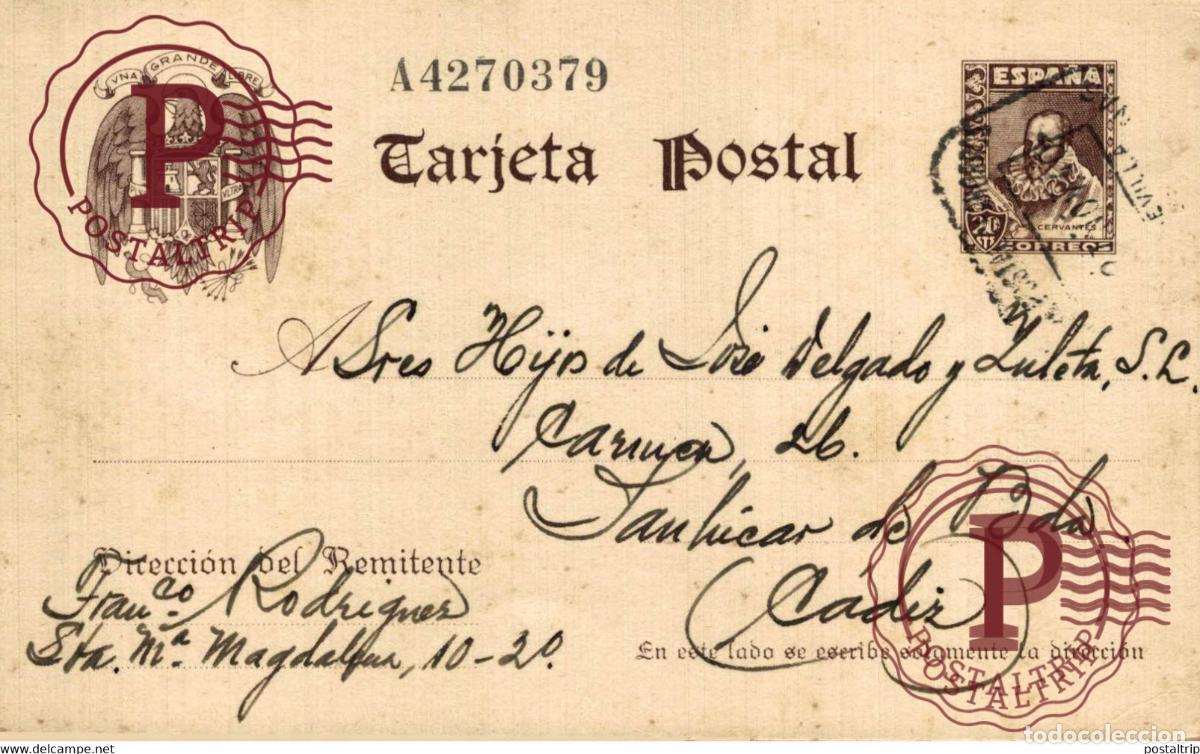 VNA GRANDE LIBRE
A4270379
Tarjeta Postal
ESPAÑA
CERVANTES
CORREOS
P
POSTALTRIP
A Sres Hijos de José Delgado y Zuleta, S.L.
Carmen, 26.
Sanlúcar de Bda.
(Cádiz)
Dirección del Remitente
Franco. Rodriguez
Sta. Mª Magdalena, 10-2º.
En este lado se escribe solamente la dirección
P
POSTALTRIP
POSTALTRIP
todocoleccion
https://www.delcampe.net
postaltrip